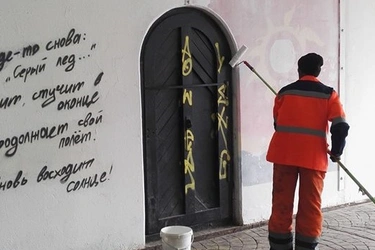 де-то снова:
"Серый лед..."
ит, стучит в
оконце
родолжает свой
полёт.
вновь восходит
солнце!